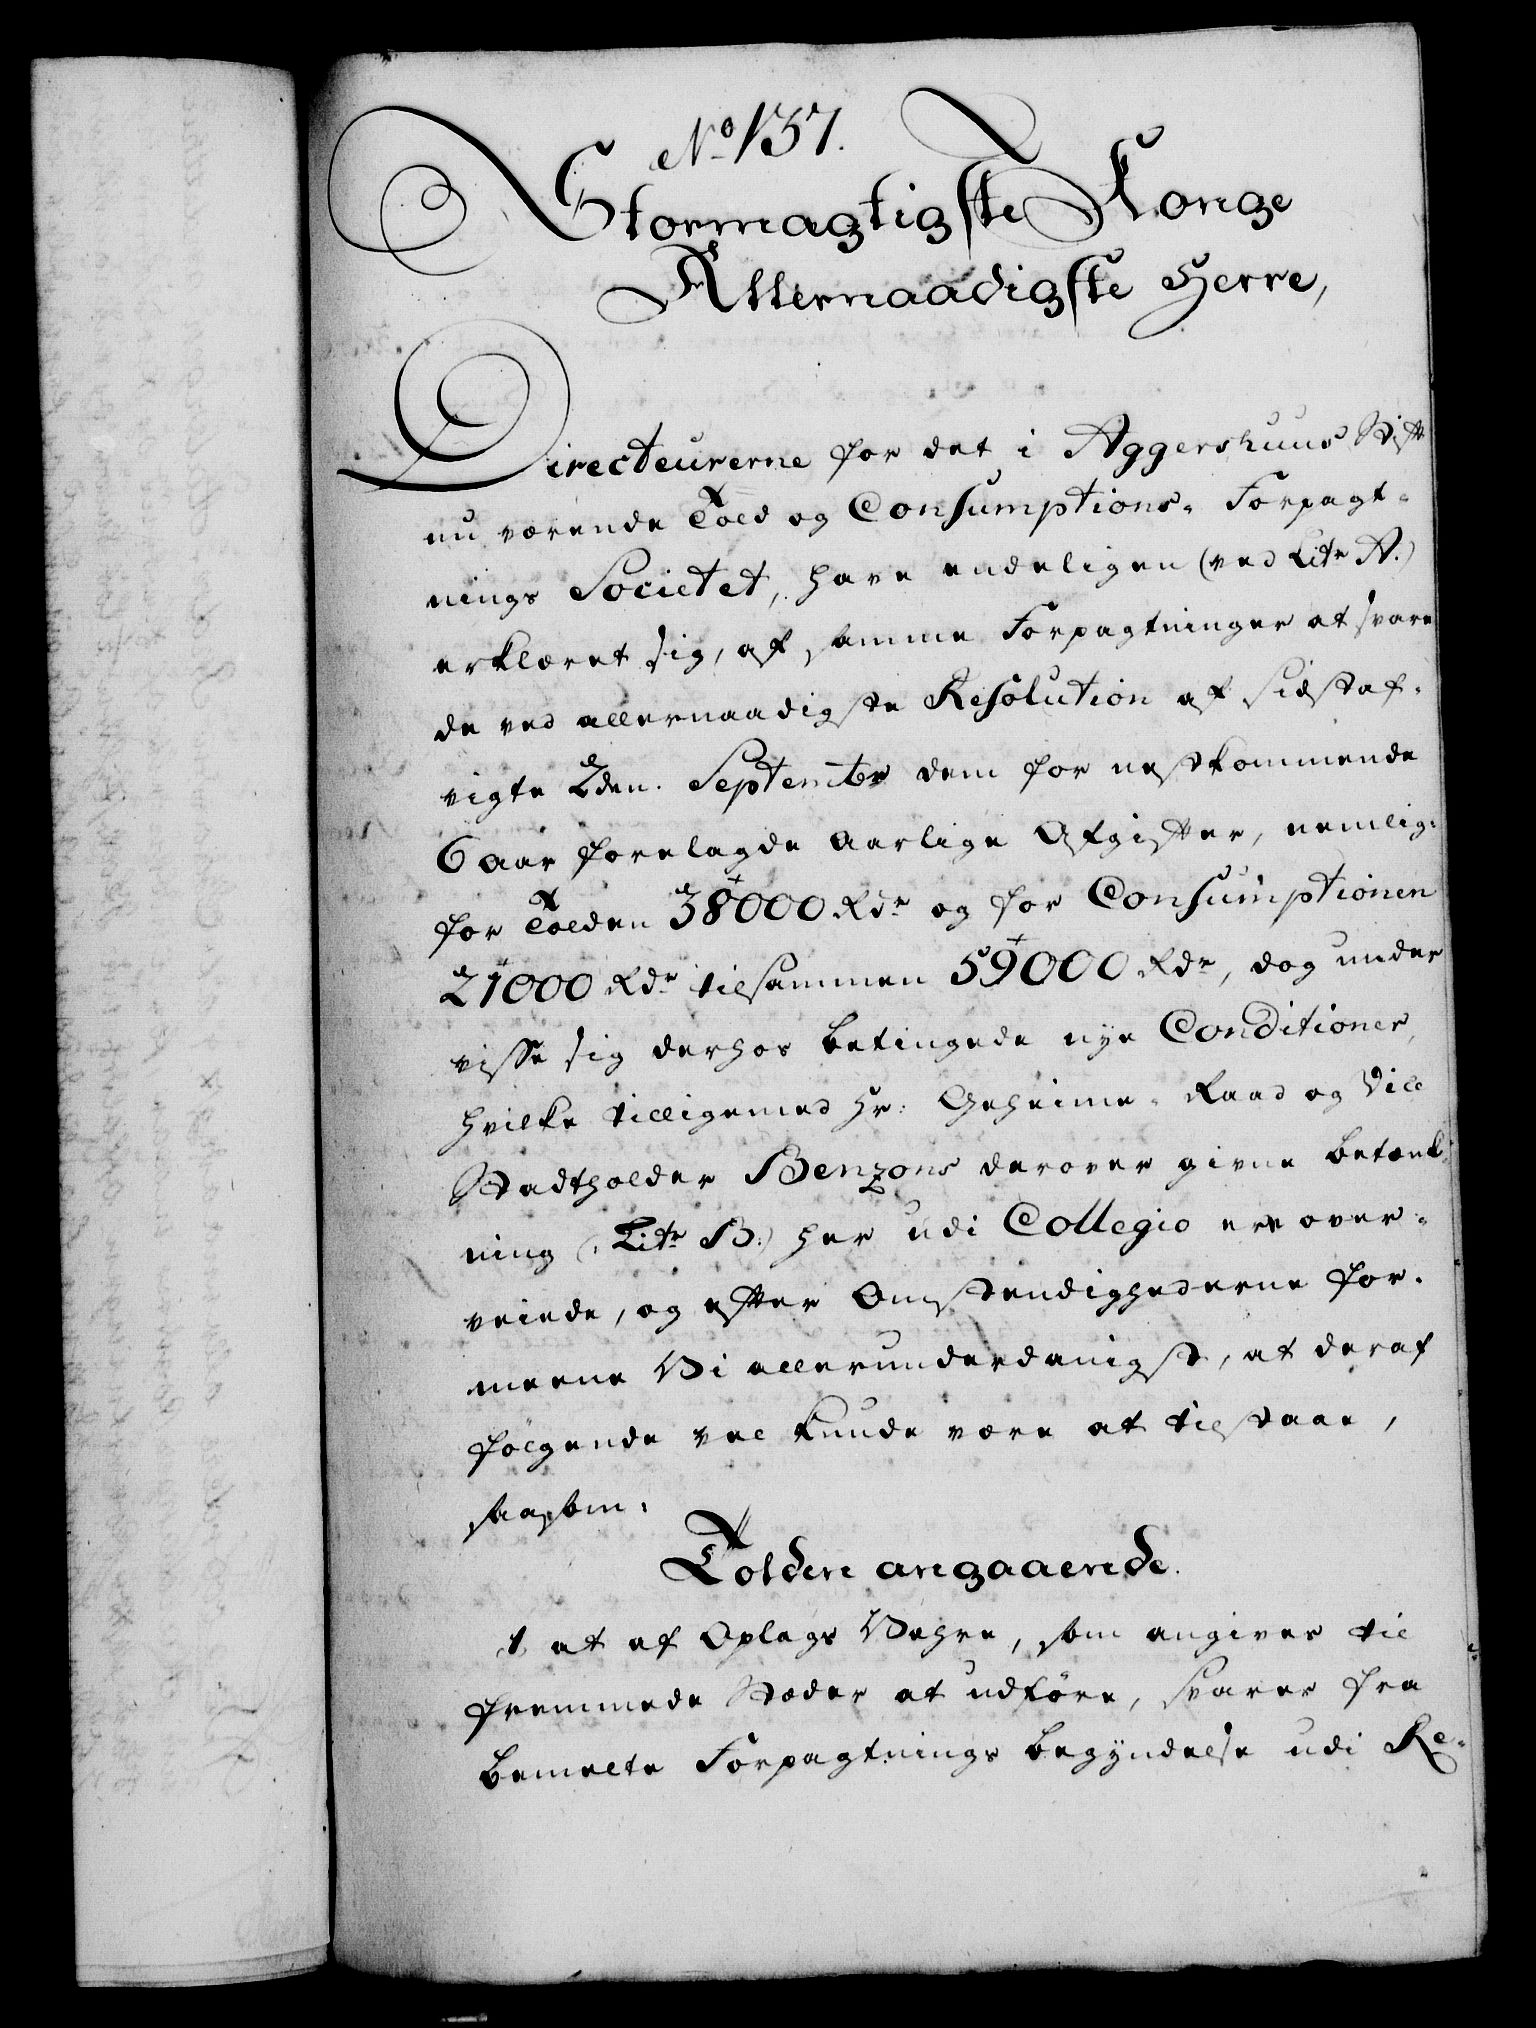 No 157.
Stormagtigste Konge
Allernaadigste Herre,
Directeurerne for det i Aggershuus Stift
nu værende Told og Consumptions- Forpagt-
nings Societet, have endeligen (ved Litr A.)
erklæret sig, af samme Forpagtninger at svare
de ved allernaadigste Resolution af sidstaf-
vigte 2den. Septembr dem for nestkommende
6 aar forelagde aarlige Afgifter, nemlig:
for Tolden 38000 Rdr og for Consumptionen
21000 Rdr tilsammen 59000 Rdr, dog under
visse sig derhos betingede nye Conditioner,
hvilke tilligemed Hr: Geheime- Raad og Vice
Stadtholder Benzons derover givne betænk-
ning (: Litr B:) her udi Collegio ere over-
veiede, og efter Omstendighederne for-
meene Vi allerunderdanigst, at deraf
følgende vel kunde være at tilstaae,
saasom:
Tolden angaaende.
1, at af Oplags Vahre, som angives til
fremmede Stæder at udføre, svares fra
bemelte Forpagtnings begyndelse udi Re-